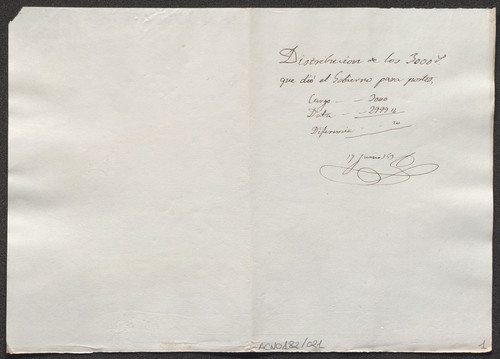 Distribucion de los 3000
que dió el Gobierno para
Cargo 3000
Data 2999
Diferencia
17 Junio
ACN0122/021
1